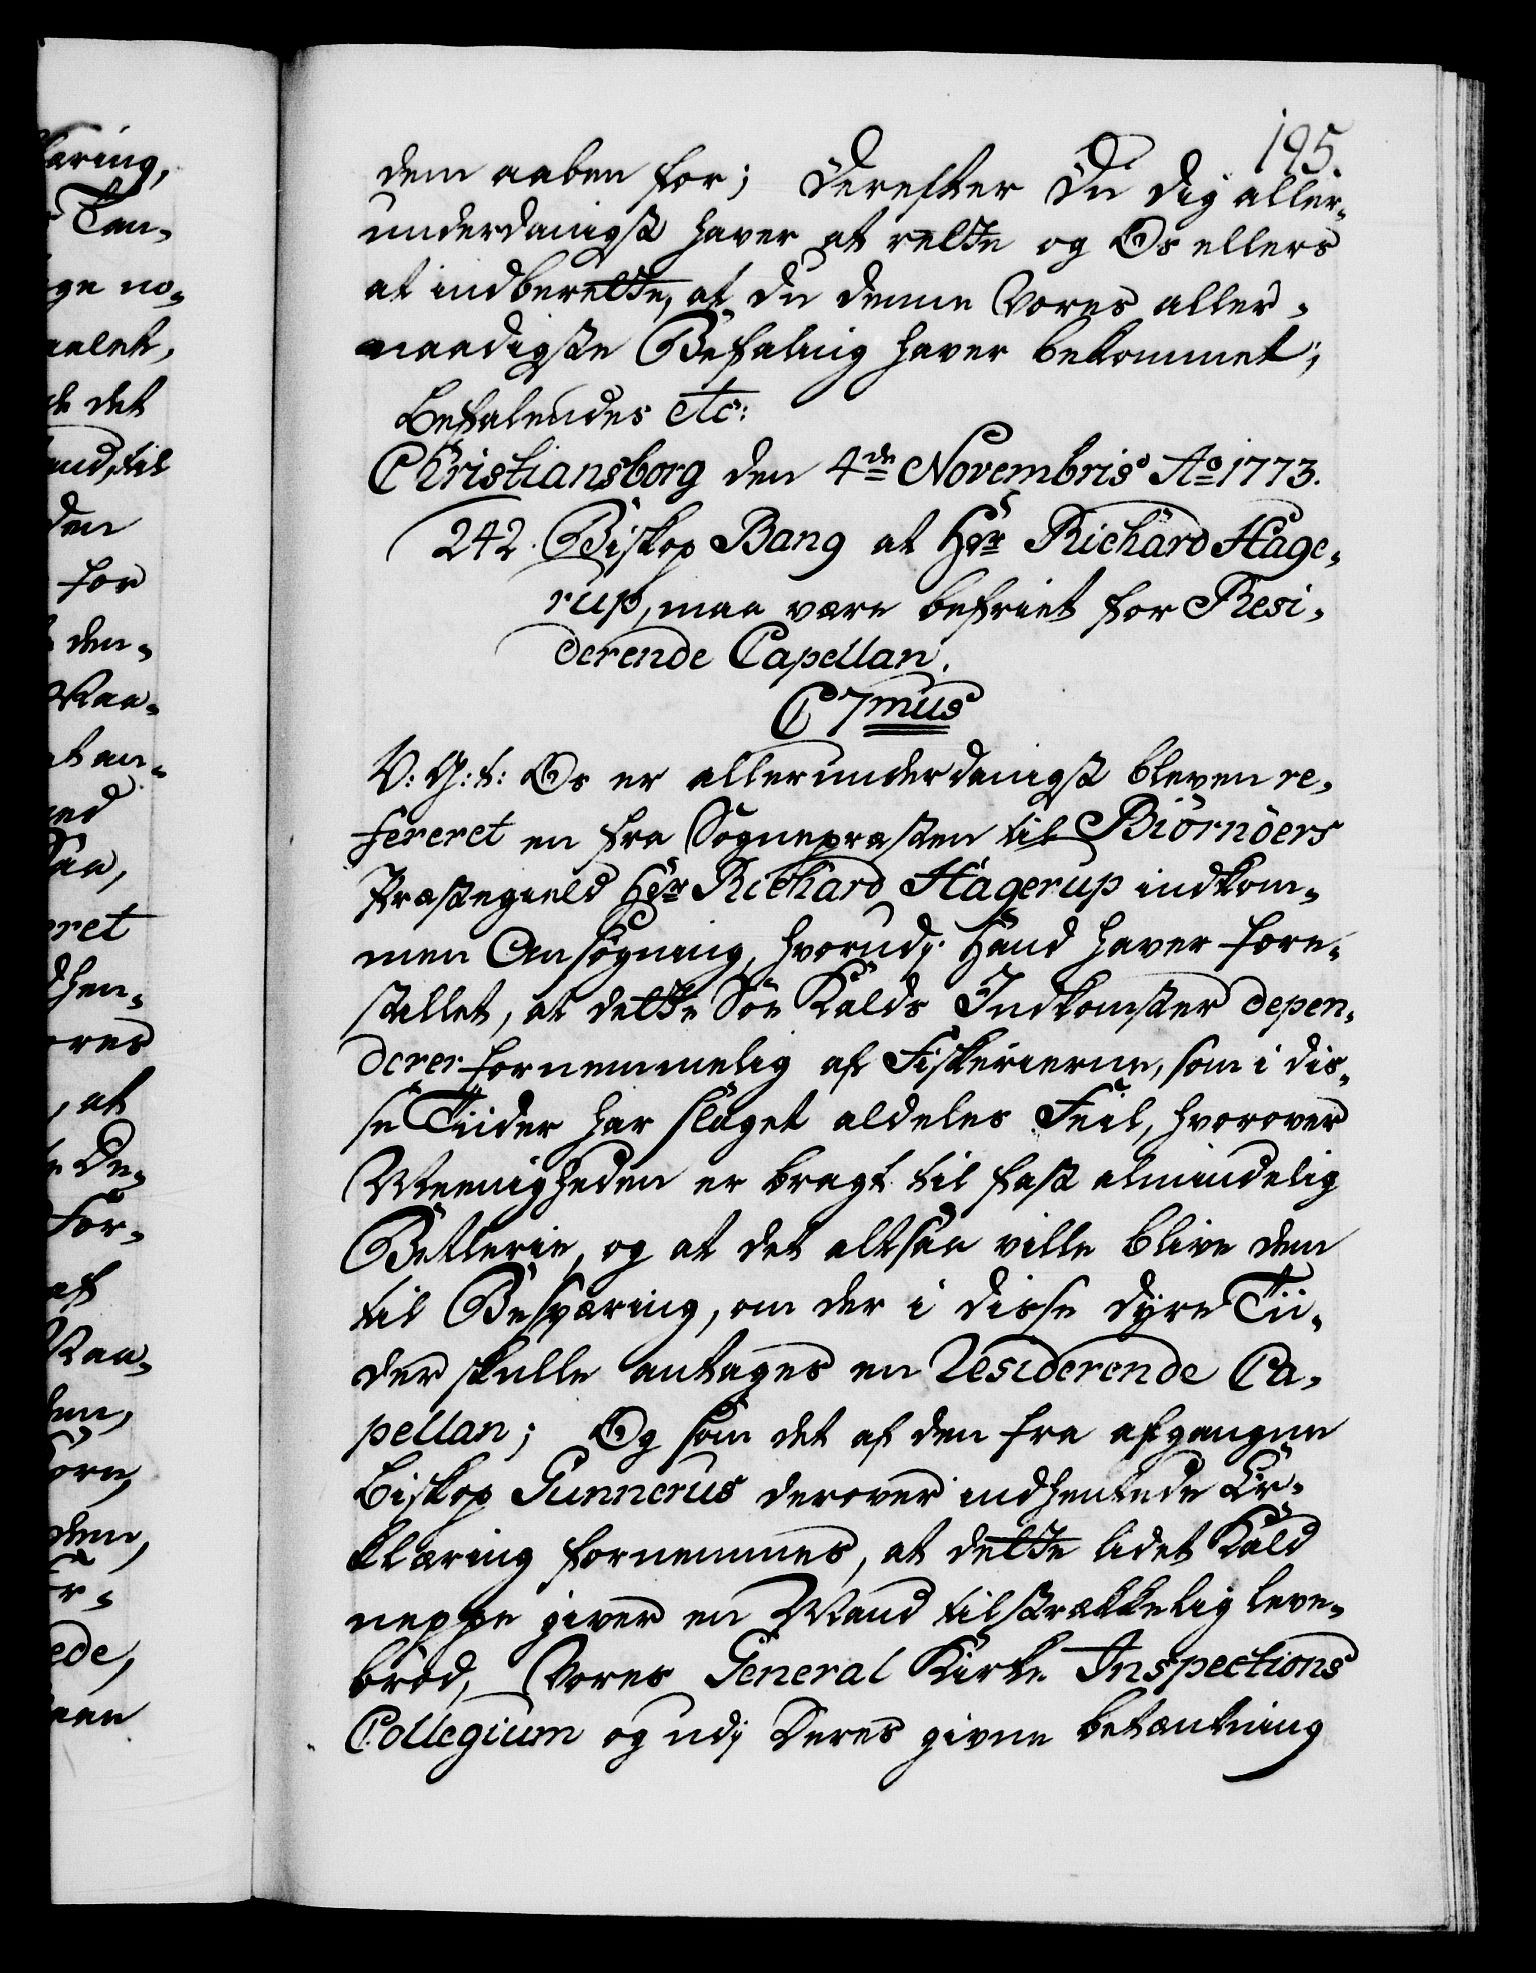 195.
dem aaben for; Derefter Du dig aller-
underdanigst haver at rette og Os ellers
at indberette, at du denne Vores aller-
naadigste Befaling haver bekommet;
Befalendes etc:
Christiansborg den 4de Novembris Ao 1773.
242. Biskop Bang at Hr Richard Hage-
rup, maa være befriet for Resi-
derende Capellan.
C 7mus
V: G: t: Os er allerunderdanigst bleven re-
fereret en fra Sognepræsten til Biörnöers
Præstegield Hr Richard Hagerup indkom-
men Ansøgning, hvorudj Hand haver fore-
stillet, at dette Söe Kalds Indkomster depen-
derer fornemmelig af Fiskerierne, som i dis-
se Tiider har slaget aldeles Feil, hvorover
Meenigheden er bragt til fast almindelig
Betlerie, og at det altsaa ville blive dem
til Besværing, om der i disse dyre Tii-
der skulle antages en Residerende Ca-
pellan; Og som det af den fra afgangne
Biskop Gunnerus derover indhentede Er-
klæring fornemmes, at dette lidet Kald
neppe giver en Mand tilstrækkelig leve-
bröd, Vores General Kirke Inspections
Collegium og udj Deres givne betænkning
æring,
Tan-
ge no-
det
til
den
for
den-
Maa-
at an-
ret
dhen-
ores
, at
De-
For-
af
Maa-
den,
Er-
ede,